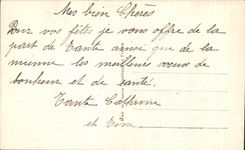 Mes bien Chères
Pour vos fêtes je vous offre de la
part de Tante ainsi que de la
mienne les meilleurs vœux de
bonheur et de santé.
Tante Catherine
et